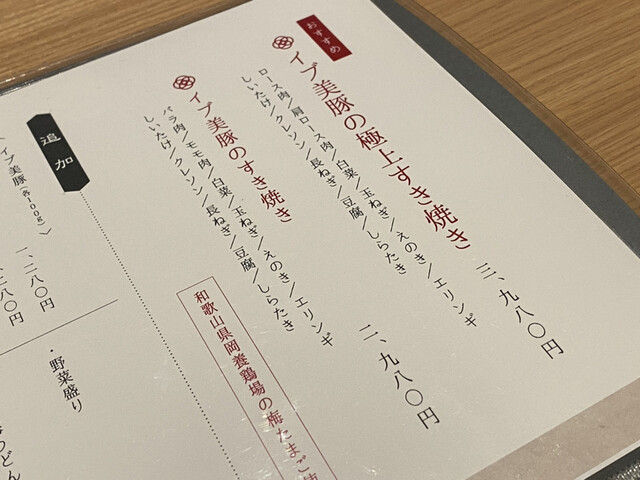 おすすめ
イブ美豚の極上すき焼き
ロース肉/肩ロース肉/白菜/玉ねぎ/えのき/エリンギ
しいたけ/クレソン/長ねぎ/豆腐/しらたき
三、九八〇円
イブ美豚のすき焼き
バラ肉/モモ肉/白菜/玉ねぎ/えのき/エリンギ
しいたけ/クレソン/長ねぎ/豆腐/しらたき
二、九八〇円
和歌山県岡養鶏場の梅たまご
追加
イブ美豚(各100g)〉
一、二八〇円
二八〇円
・野菜盛り
うどん